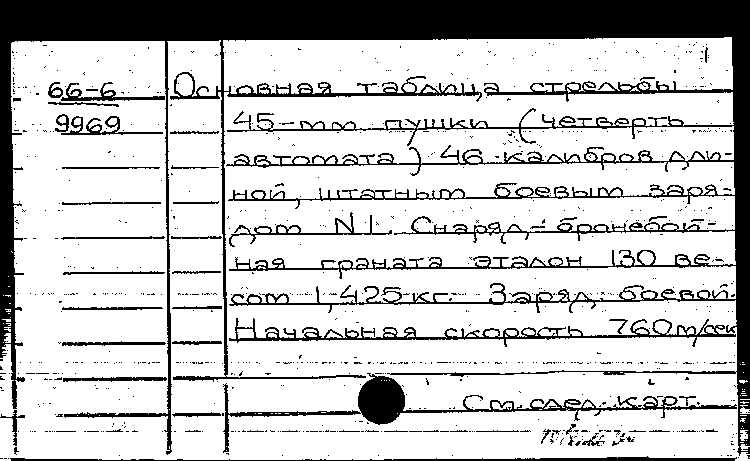 66-6 Основная таблица стрельбы
9969 45-мм пушки (четверть
автомата) 46 калибров дли-
ной, штатным боевым заря-
дом N 1. Снаряд - бронебой-
ная граната эталон 130 ве-
сом 1,425 кг. Заряд боевой.
Начальная скорость 760 м/сек
См. след. карт.